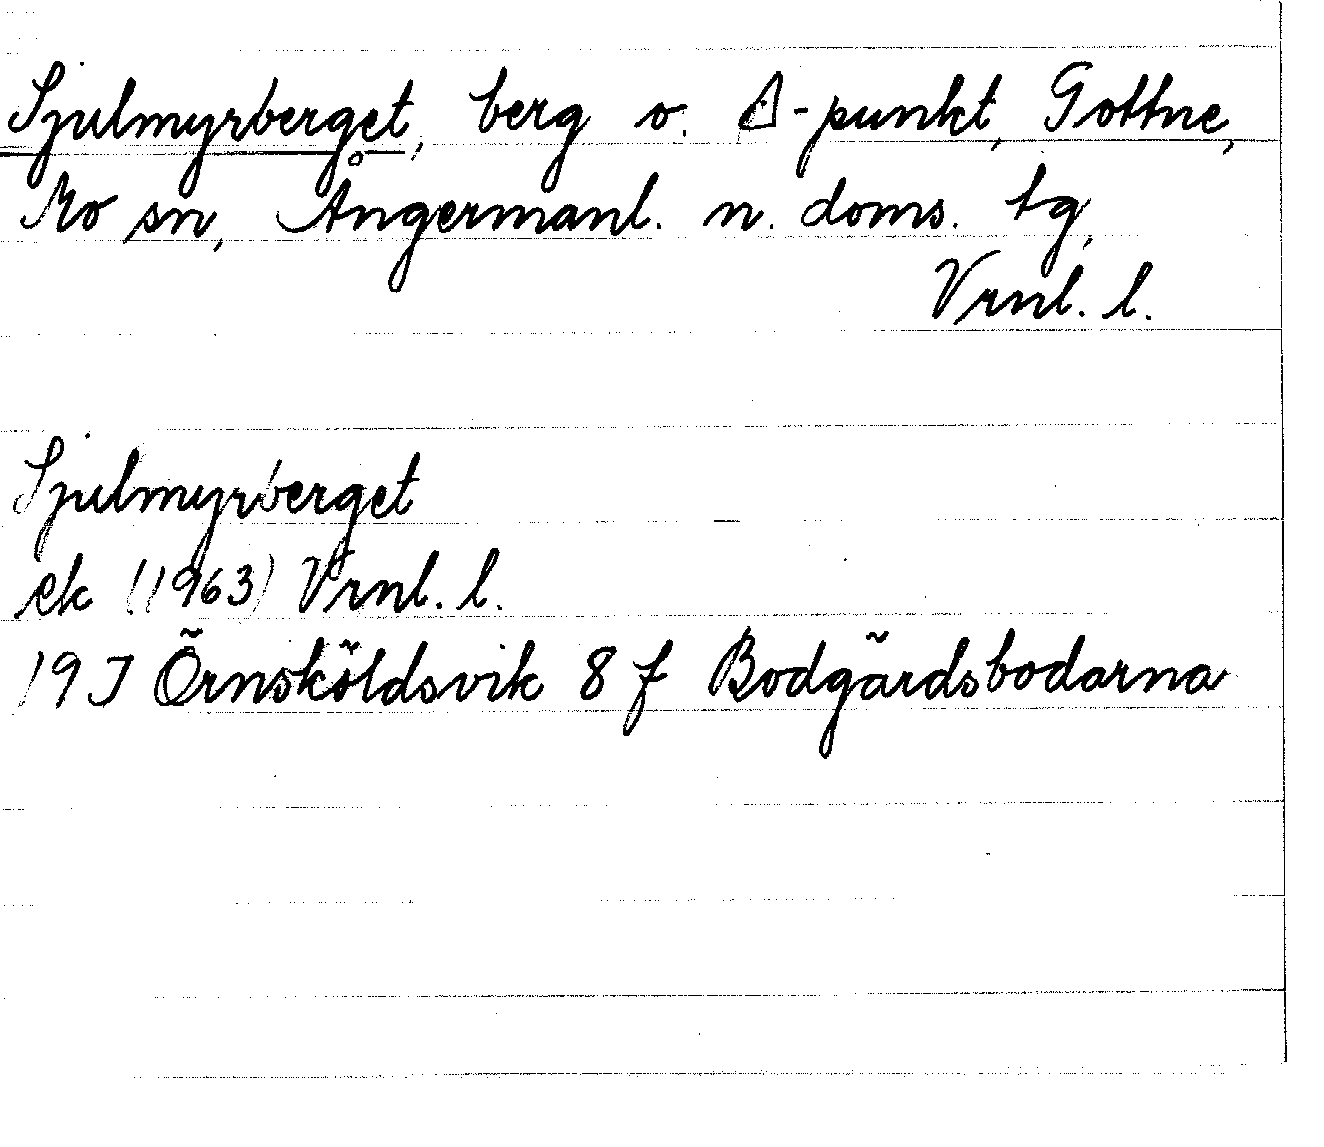 Sjulmyrberget, berg o. △-punkt, Gottne,
Mo sn, Ångermanl. n. doms. tg,
Vrnl. l.
Sjulmyrberget
ek (1963) Vrnl. l.
19 J Örnsköldsvik 8 f Bodgärdsbodarna